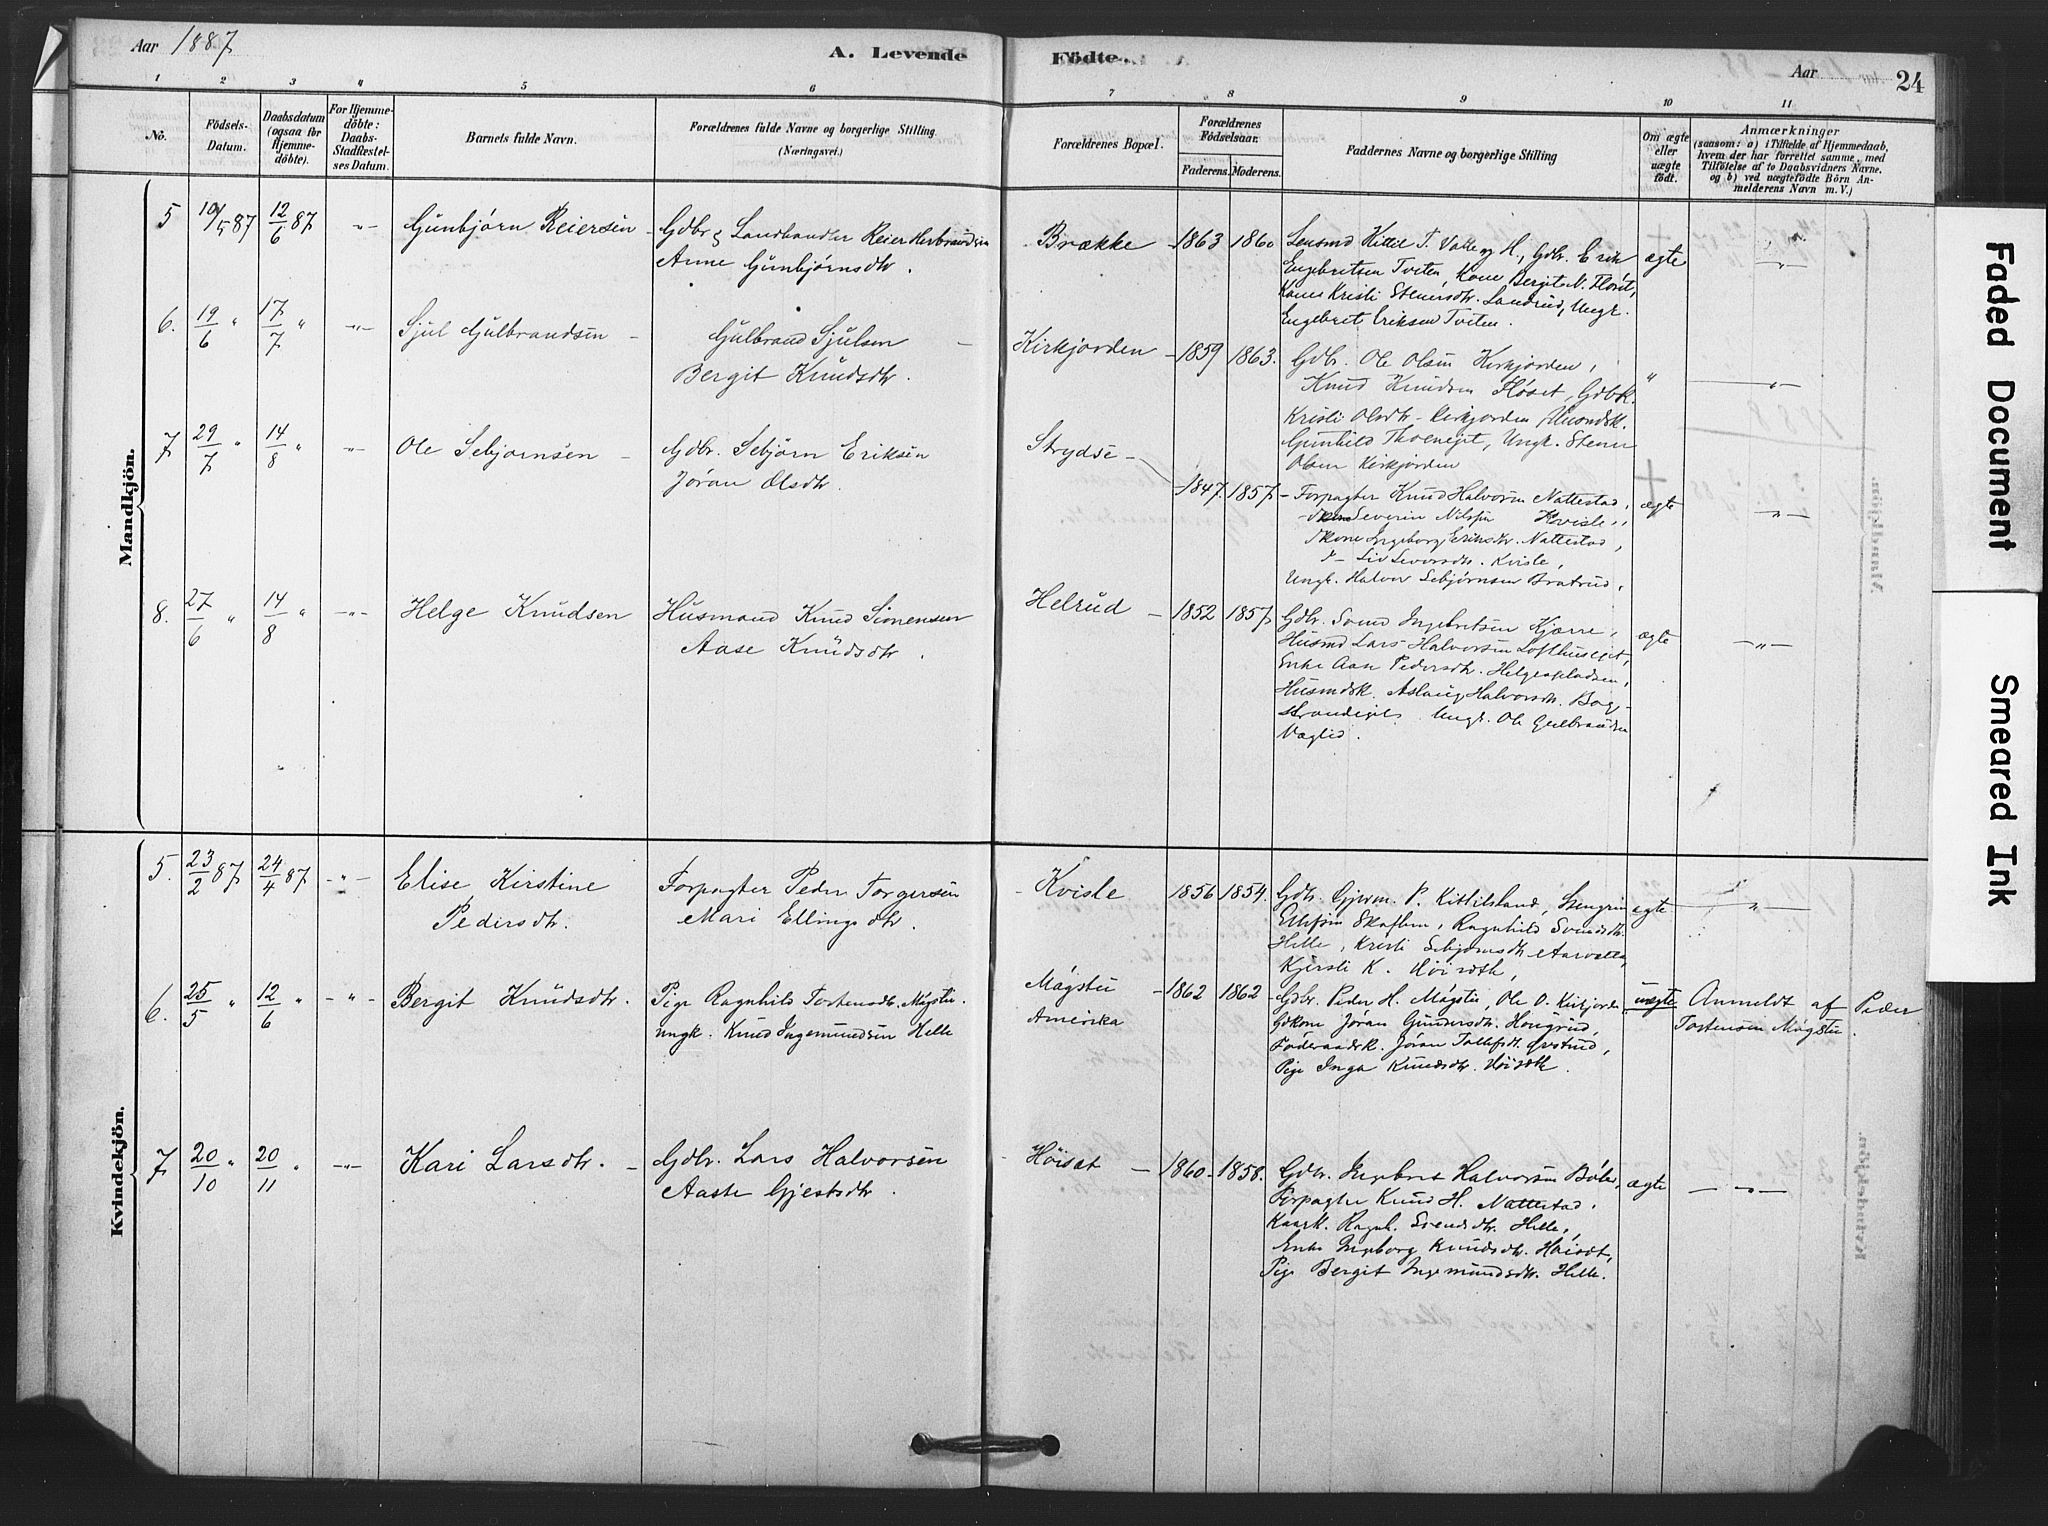 Aar 1887
A. Levende Födte.
Aar
24
1 2 3 4 5 6 7 8 9 10 11
No.
Födsels-Datum.
Daabsdatum (ogsaa for Hjemme-döbte).
For Hjemme-döbte: Daabs-Stadfæstel-ses Datum.
Barnets fulde Navn.
Forældrenes fulde Navne og borgerlige Stilling.
(Næringsvei.)
Forældrenes Bopæl.
Forældrenes Födselsaar.
Faderens. Moderens.
Faddernes Navne og borgerlige Stilling
Om ægte eller uægte födt.
Anmærkninger
(saasom: a) i Tilfælde af Hjemmedaab,
hvem der har forrettet samme, med
Tilföielse af to Daabsvidners Navne,
og b) ved uægtefödte Börn An-
melderens Navn m.V.)
Mandkjön.
5 10/5 87 12/6 87 -"- Gunbjørn Reiersen - Gdbr & Landhandler Reier Herbrandsen
Anne Gunbjørnsdtr.
Brække - 1863 1860
Lensmd Kittil T. Valle og H., Gdbr. Erik
Engebretsen Tveten, Kone Bergit N. Fløset,
Kone Kristi Stenersdtr. Landrud, Ungk.
Engebret Eriksen Tveten.
ægte -"-
6. 19/6 " 17/7 " -"- Sjul Gulbrandsen - Gulbrand Sjulsen -
Bergit Knudsdtr.
Kirkjorden - 1859 1863.
Gdbr. Ole Olsen Kirkjorden,
Knud Knudsen Fløset, Gdbk.
Kristi Olsdtr. Kirkjorden, Husmdsk.
Gunhild Thoeneget, Ungk. Stener
Olsen Kirkjorden
" -"-
7 29/7 " 14/8 " -"- Ole Sebjørnsen - Gdbr. Sebjørn Eriksen
Jøran Olsdtr.
Strydse - 1847. 1857
- Forpagter Knud Halvorsen Nattestad,
Severin Nilssen Kvisle,
Kone Ingeborg Eriksdtr. Nattestad,
Liv Seversdtr. Kvisle,
Ungk. Halvor Sebjørnsen Bratrud,
ægte -"-
8. 27/6 " 14/8 " -"- Helge Knudsen Husmand Knud Simensen
Aase Knudsdtr.
Helrud - 1852 1857
Gdbr. Svend Ingebretsen Kjærre,
Husmd Lars Halvorsen Lofthuseget,
Enke Aase Pedersdtr. Helgespladsen,
Husmdsk. Aslaug Halvorsdtr. Borg-
strandeget. Ungk. Ole Gulbrandsen
Vaglid.
ægte -"-
Kvindekjön.
5. 23/2 87 24/4 87 -"- Elise Kirstine
Pedersdtr.
Forpagter Peder Torgersen
Mari Ellingsdtr.
- Kvisle 1856 1854.
Gdbr. Gjerm. P. Kittilsland,
Ellefsen Skaflem, Ragnhild Svendsdtr.
Helle, Kristi Sebjørnsdtr Aarvalla,
Kjersti K. Høisæth,
ægte -"-
6. 25/5 " 12/6 " -"- Bergit Knudsdtr. Pige Ragnhild Tostensdtr. Mågstu.
Ungk. Knud Ingemundsen Helle
Mågstu
Amerika
- 1862 1862
- Gdbr. Peder H. Mågstu, Ole O. Kirkjorden
Gdkone Jøran Gundersdtr. Hougrud,
Føderaadsk. Jøran Tollefsdtr. Ørstrud,
Pige Inga Knudsdtr. Høisæth.
uægte
Anmeldt af Peder
Tostensen Mågstu.
7 20/10 " 20/11 " -"- Kari Larsdtr. - Gdbr. Lars Halvorsen
Aaste Gjestsdtr.
- Höisæt - 1860 - 1858.
Gdbr. Ingebret Halvorsen Bøle,
Forpagter Knud H. Nattestad,
Kaark. Ragnh. Svendsdtr. Helle,
Enke Ingeborg Knudsdtr. Høisæt,
Pige Bergit Ingemundsdtr. Helle.
ægte -"-
Faded Document
Smeared Ink